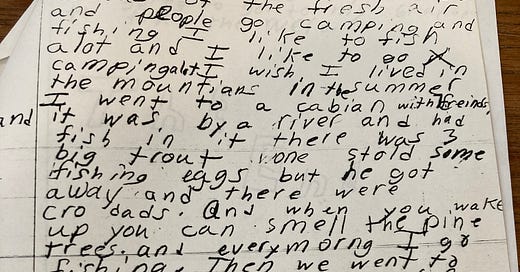 of the fresh air
and people go camping and
fishing I like to fish
alot and I like to go
camping alot I wish I lived in
the mountians in the summer
I went to a cabian with freinds.
and it was by a river and had
fish in it there was 3
big trout one stold some
fishing eggs but he got
away and there were
cro dads. and when you wake
up you can smell the pine
trees. and every morng I go
fishing. Then we went to